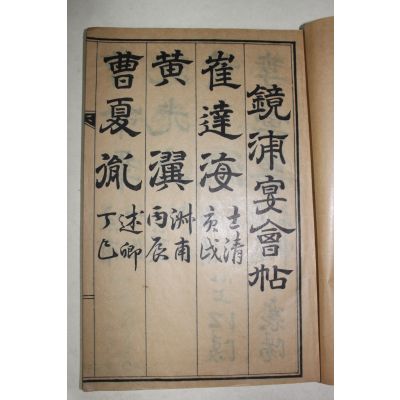 鏡浦宴會帖
崔達海 士清 庚戌
黄瀷 淋甫 丙辰
曹夏胤 述卿 丁巳